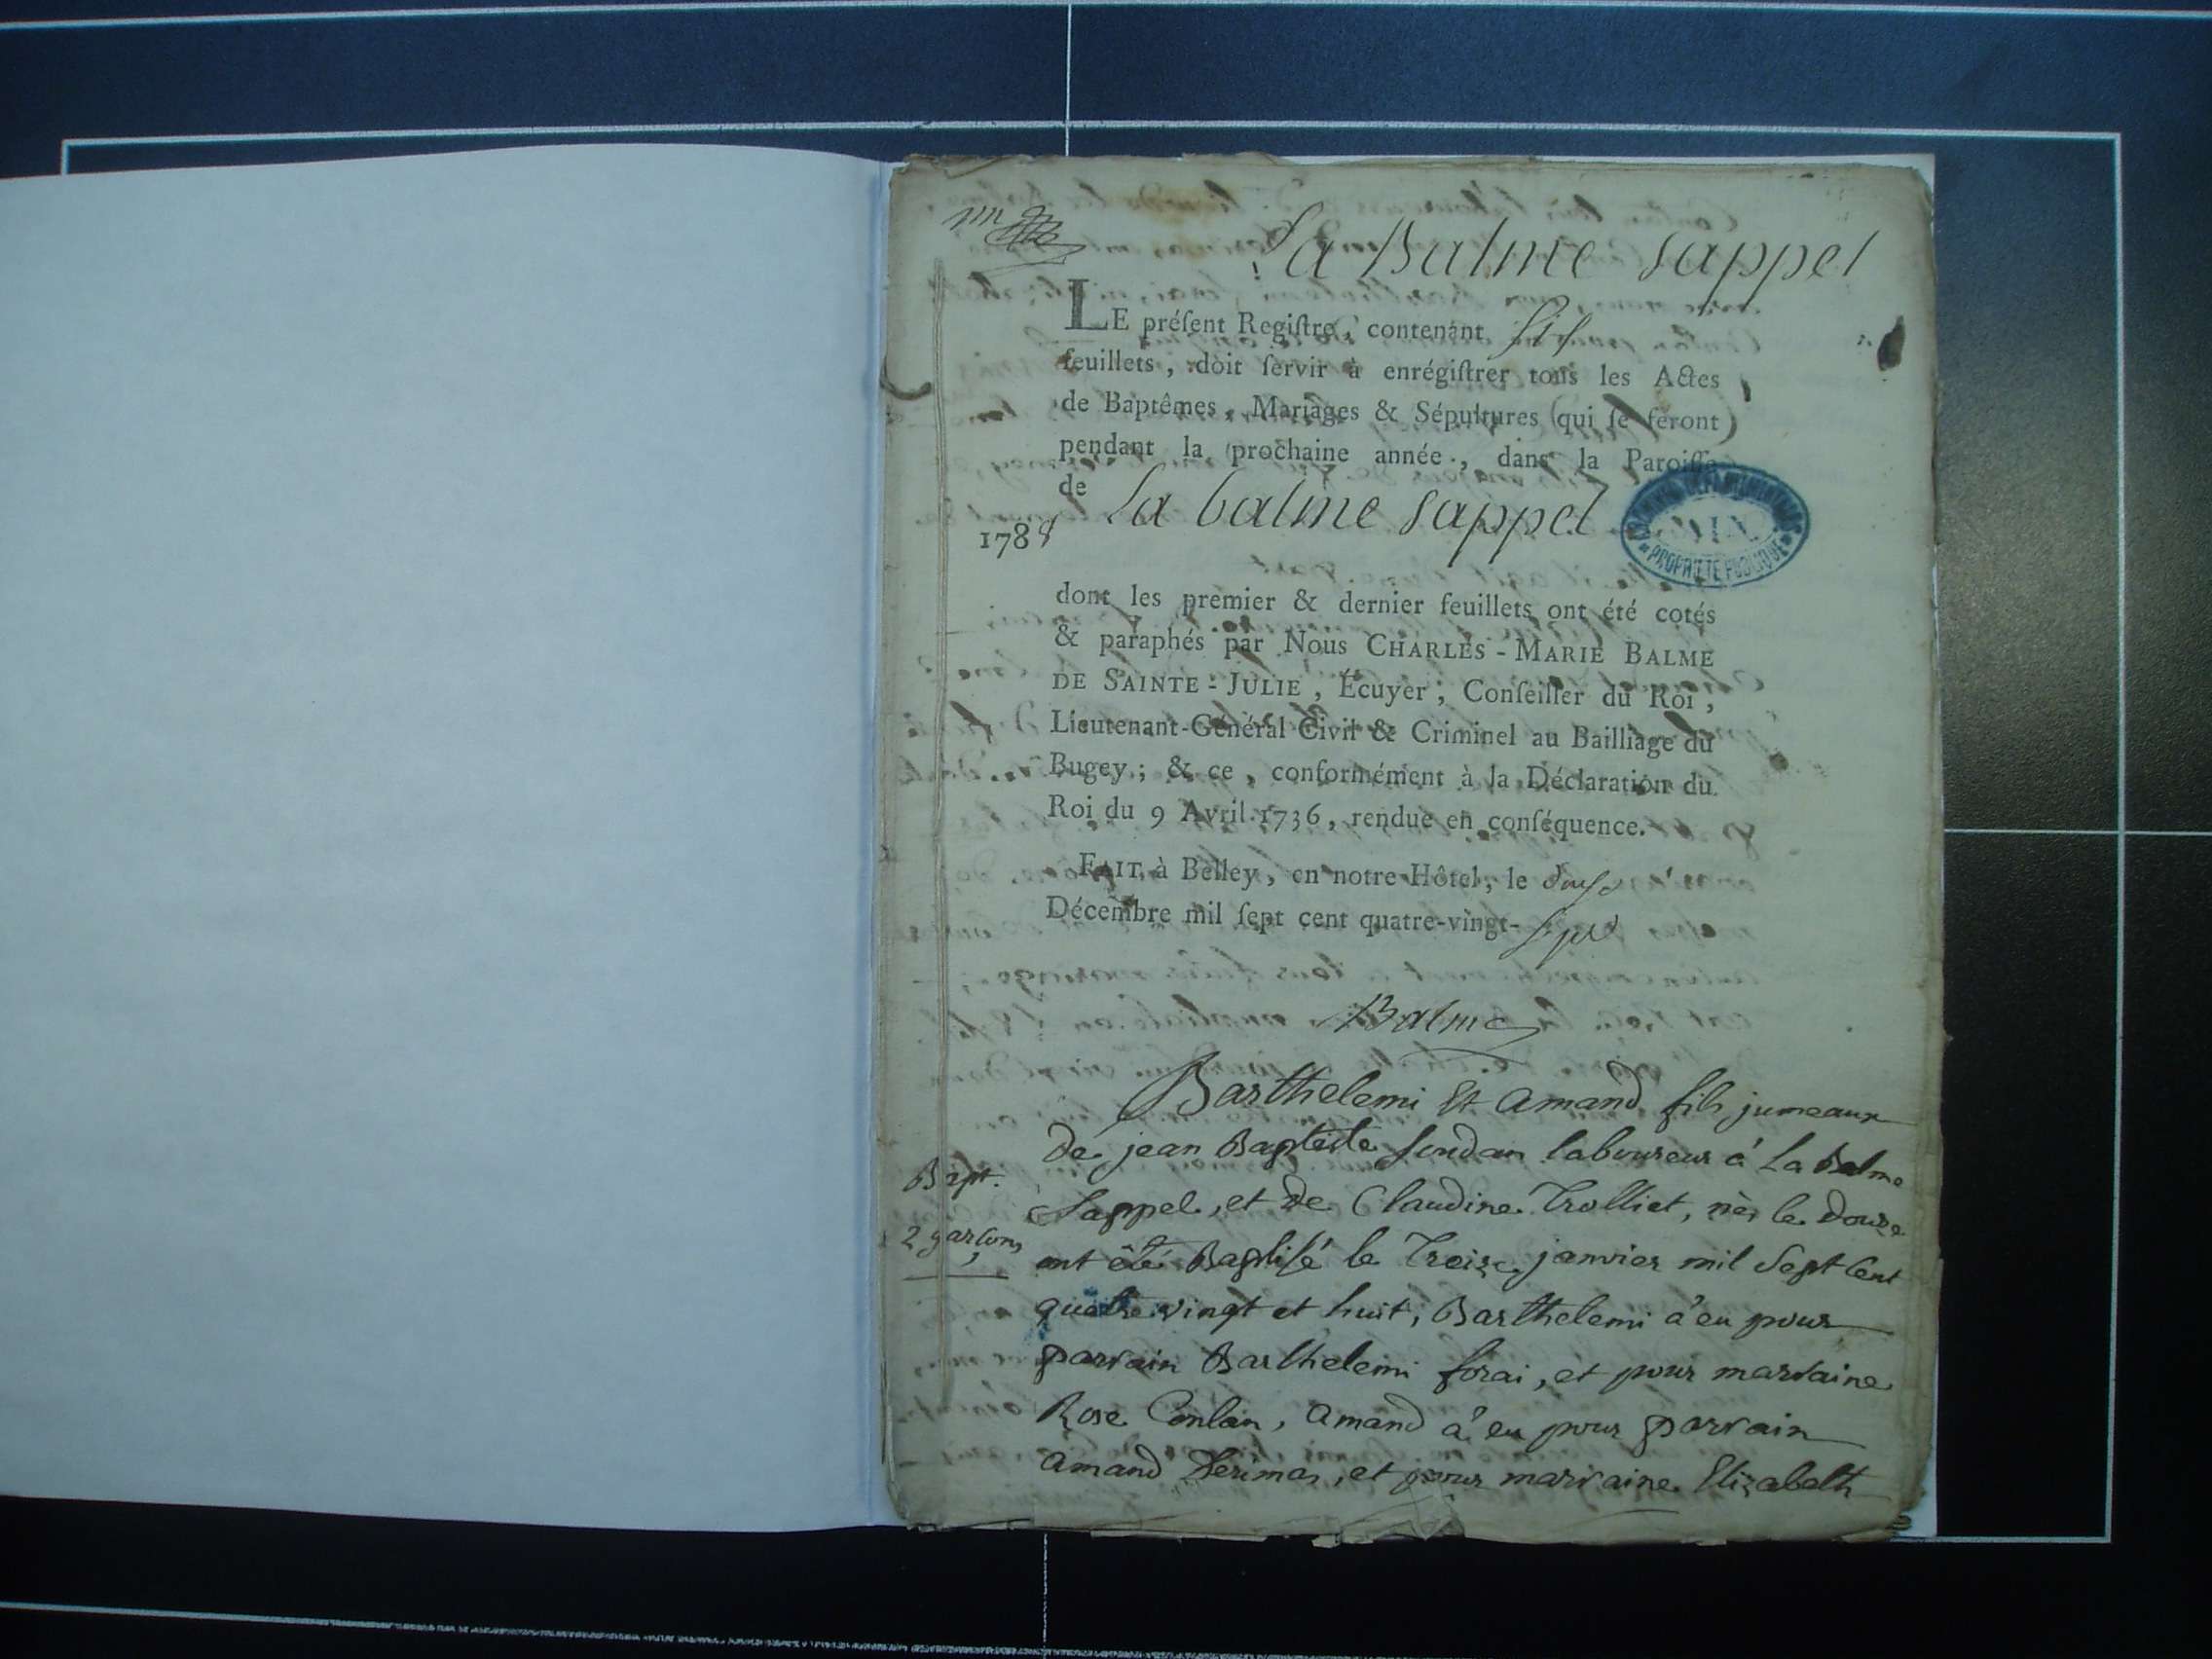 La Balme sappel
LE préſent Regiſtre, contenant six
feuillets, doit ſervir à enrégiſtrer tous les Actes
de Baptêmes, Mariages & Sépultures (qui ſe feront)
pendant la prochaine année, dans la Paroiſſe
de La balme sappel
1788
ARCHIVES DÉPARTEMENTALES
AIN
PROPRIÉTÉ PUBLIQUE
dont les premier & dernier feuillets ont été cotés
& paraphés par Nous CHARLES-MARIE BALME
DE SAINTE-JULIE, Écuyer, Conſeiller du Roi,
Lieutenant-Général Civil & Criminel au Bailliage du
Bugey; & ce, conformément à la Déclaration du
Roi du 9 Avril 1736, rendue en conſéquence.
FAIT, à Belley, en notre Hôtel, le douze
Décembre mil ſept cent quatre-vingt-sept
Balme
Barthelemi Et amand fils jumeaux
de jean Baptiste laboureur à La Balme
Bapt.
Sappel, et de Claudine Trolliet, nés le douze
2 garçons
ont été Baptisé le Treize janvier mil Sept Cent
quatre vingt et huit, Barthelemi à eu pour
parrain Barthelemi forai, et pour marraine
Rose, amand à eu pour parrain
amand, et pour marraine Elizabeth